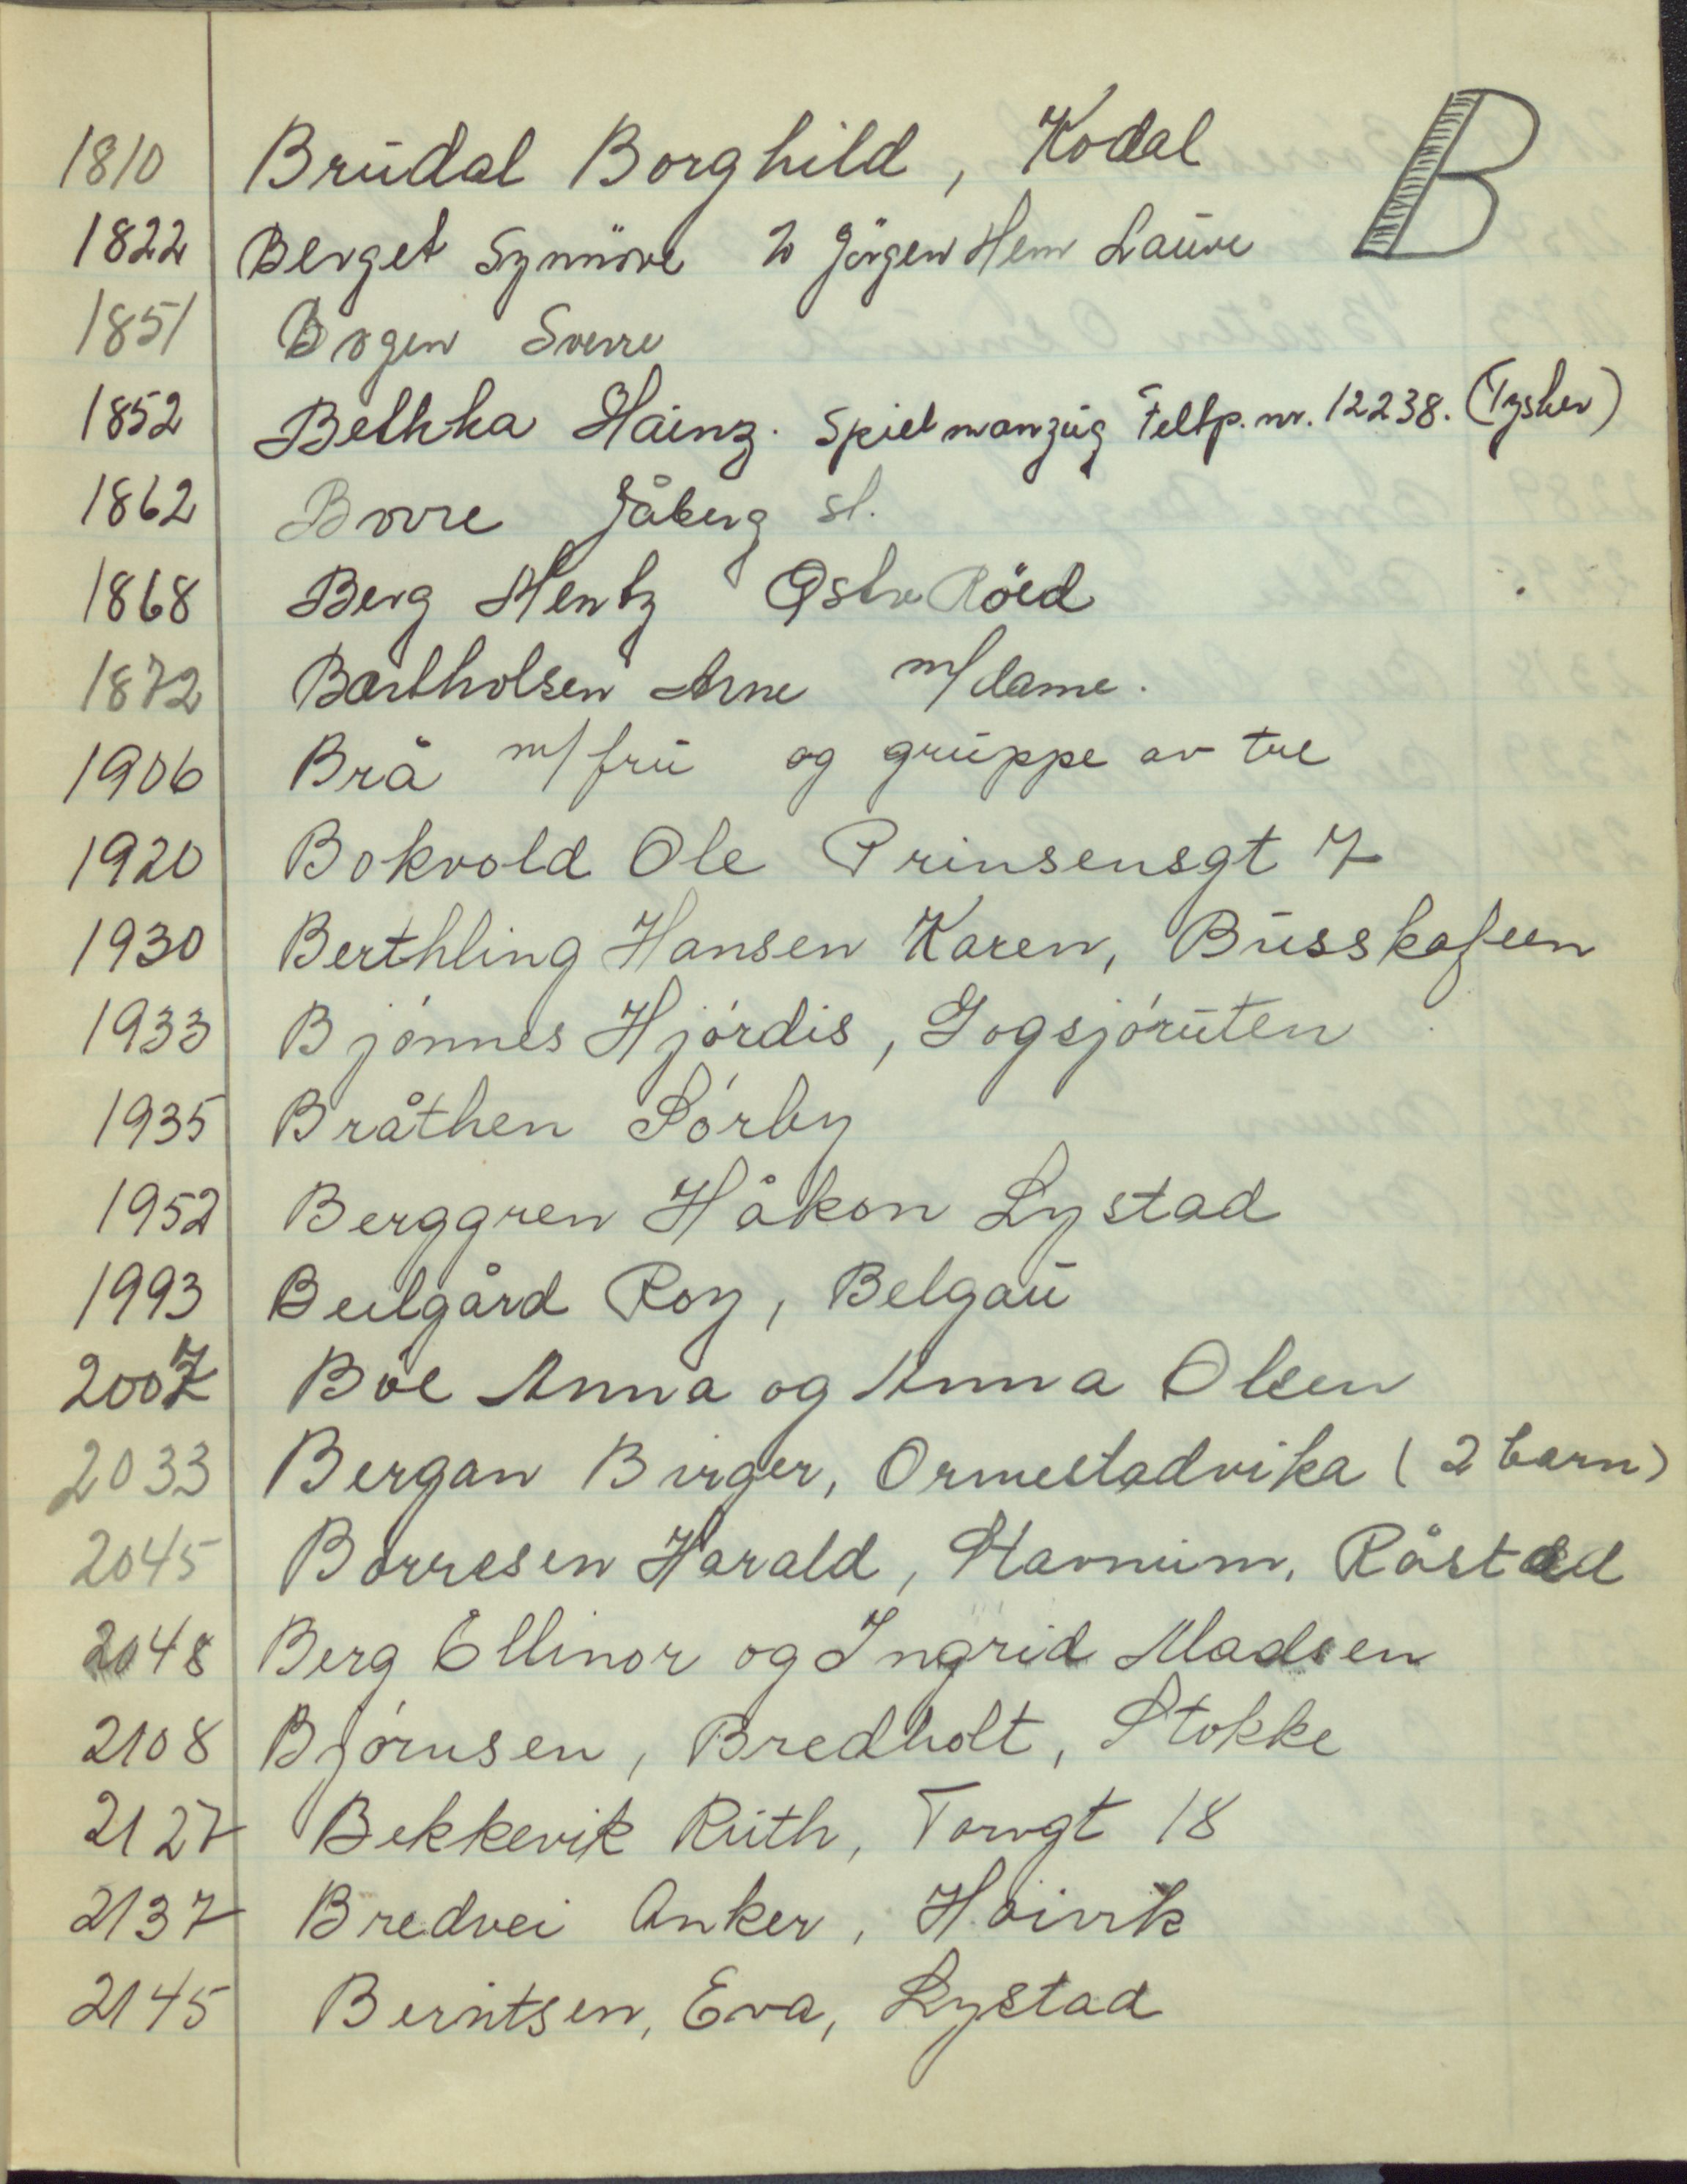 B
1810 Brudal Borghild, Kodal
1822 Berget Synnöve Jörgen Hem Lauve
1851 Bogen Sverre
1852 Bethka Hainz. Spielmanzug Feltp. nr. 12238. (Tysker)
1862 Borre Jåberg st.
1868 Berg Hentz Østre Röed
1872 Bartholsen Arne m/dame.
1906 Brå m/fru og gruppe av tre
1920 Bokvold Ole Prinsensgt 7
1930 Berthling Hansen Karen, Busskafeen
1933 Bjónnes Hjórdis, Gogsjóruten
1935 Bråthen Sórby
1952 Berggren Håkon Lystad
1993 Beilgård Roy, Belgau
2007 Böe Anna og Anna Olsen
2033 Bergan Birger, Ormestadvika (2 barn)
2045 Börresen Harald, Stavnum, Råstad
2048 Berg Ellinor og Ingrid Madsen
2108 Bjórnsen, Bredholt, Stokke
2127 Bekkevik Ruth, Torvgt 18
2137 Bredvei Anker, Høivik
2145 Berntsen, Eva, Lystad